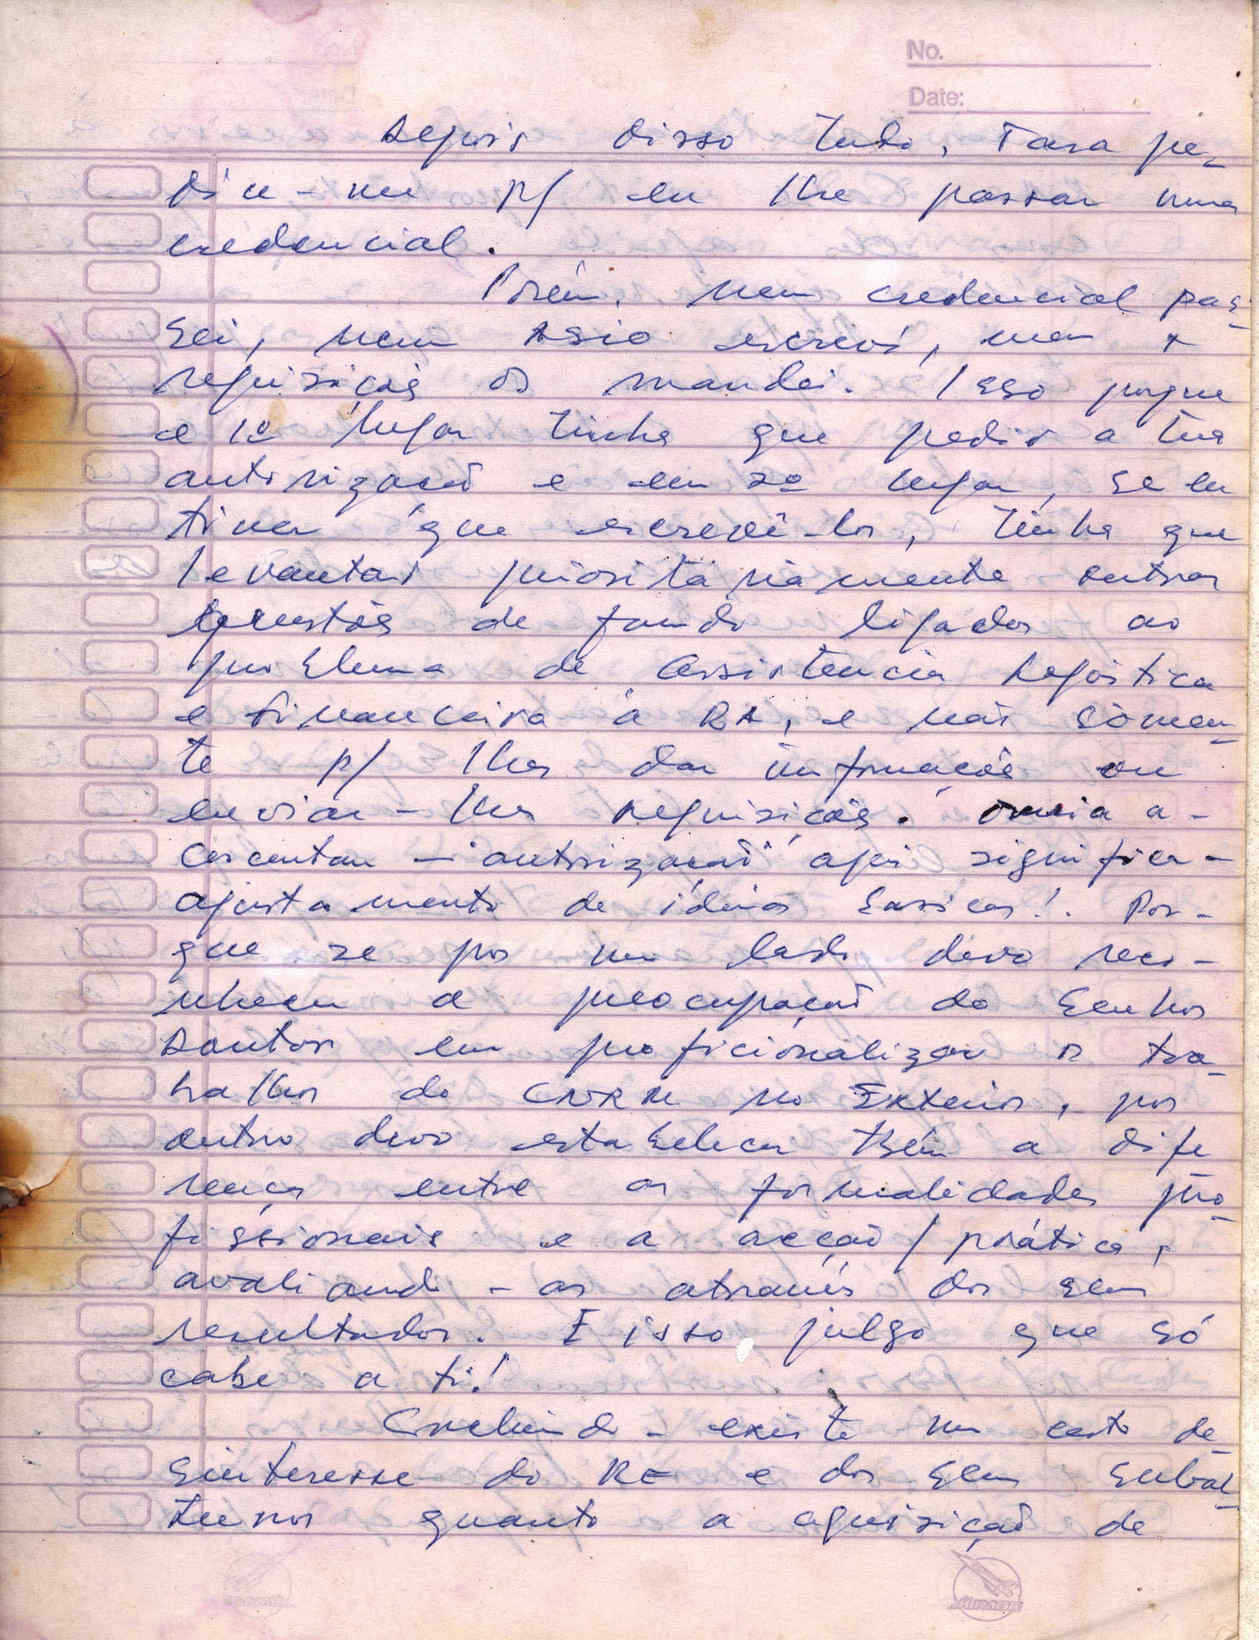 No.
Date:
Depois disso tudo, Tara pe-
diu-me p/ eu lhe passar uma
credencial.
Porém, nem credencial pas-
sei, nem Asio escrevi, nem
requisições os mandei. Isso porque
e 1º lugar tinha que pedir a tua
autorização e em 2º lugar, se eu
tiver que escrevê-los, tinha que
levantar prioritàriamente outras
questões de fundo ligados ao
problema de Assistencia Logistica
e financeira à RA, e não sòmen-
te p/ lhes dar informações ou
enviar-lhes requisições. Queria a-
crescentar - "autorização" aqui significa -
ajustamento de idéias basicas!. Por-
que se por um lado devo reco-
nhecer a preocupação do Senhor
Santos em proficionalizar o tra-
balho do CNRM no Exterior, por
outro devo estabelecer tbém a dife
rença entre as formalidades pro-
fissionais e a acção/prática,
avaliando-as através dos seus
resultados. E isso julgo que só
cabe a ti!
Concluindo - existe um certo de-
sinteresse do RE e dos seus subal-
ternos quanto a aquisição de